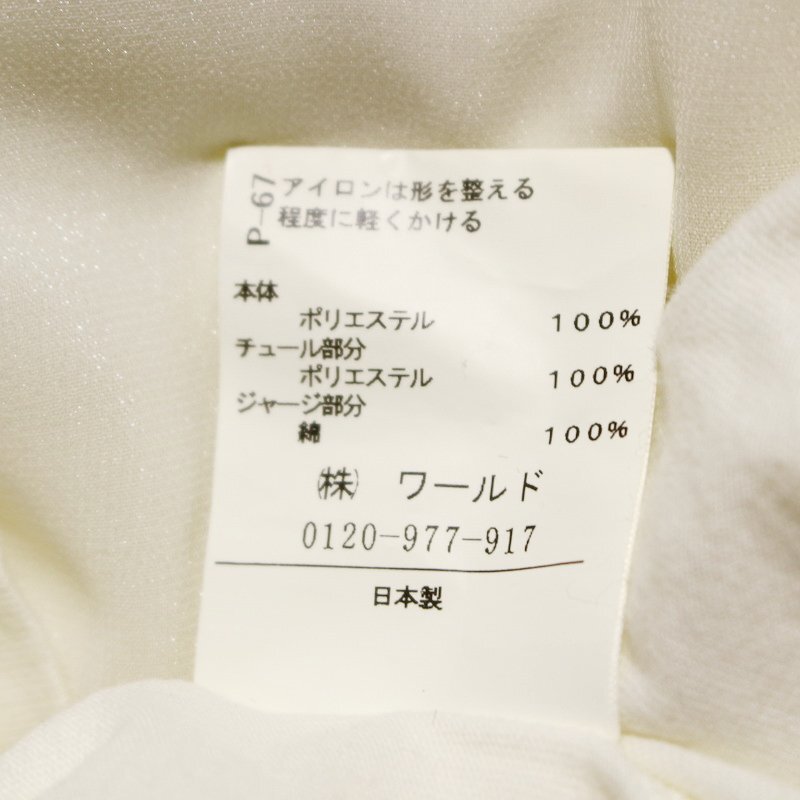 P-67
アイロンは形を整える
程度に軽くかける
本体
ポリエステル 100%
チュール部分
ポリエステル 100%
ジャージ部分
綿 100%
㈱ ワールド
0120-977-917
日本製